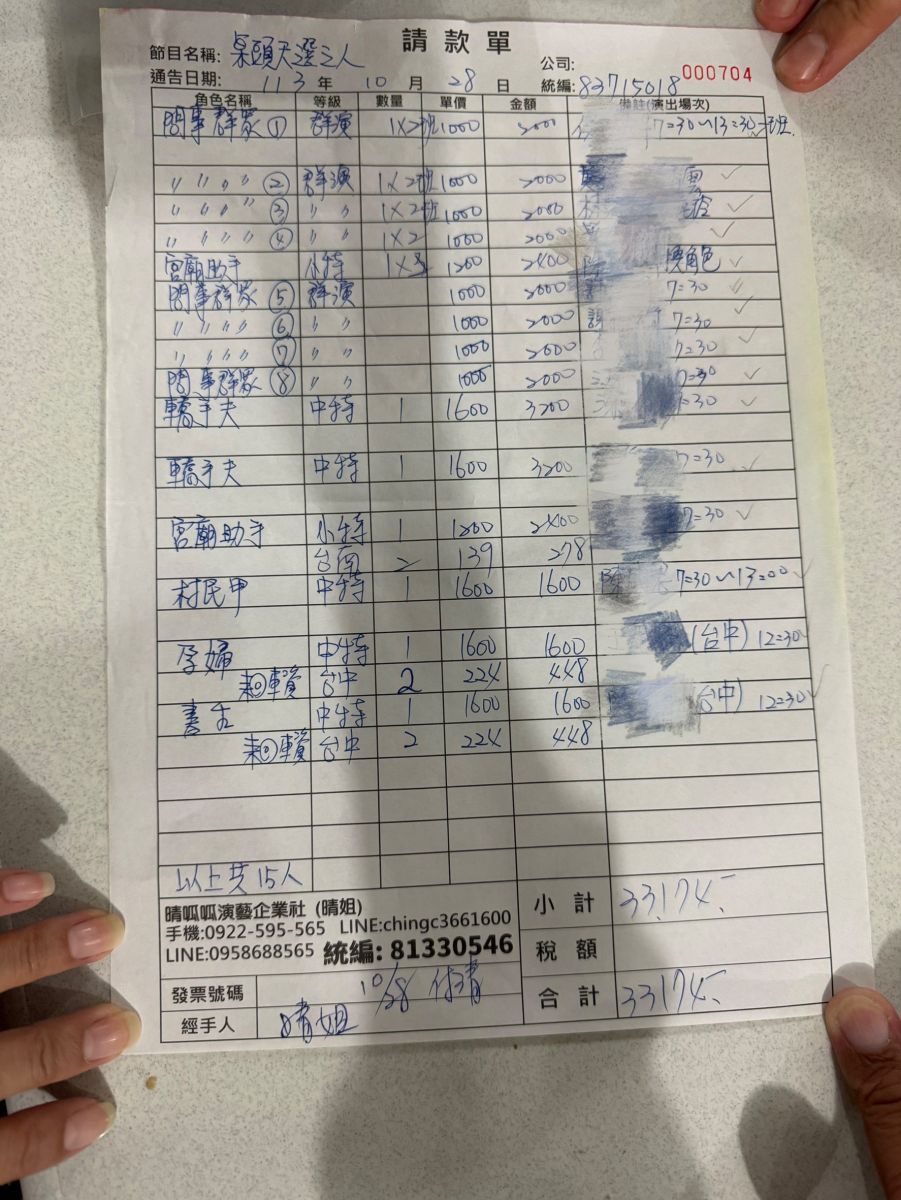 請款單
節目名稱: 桌頭天選之人 公司:
000704
通告日期: 113 年 10 月 28 日 統編: 83715018
角色名稱 等級 數量 單價 金額 備註(演出場次)
問事群眾① 群演 1×2班 1000 7=30~13=30
〃〃〃〃② 群演 1×2班 1000 2000
〃〃〃〃③ 〃〃 1×2班 1000 2000
〃〃〃〃④ 〃〃 1×2 1000 2000
宮廟助手 小特 1200 2400 角色
問事群眾⑤ 群演 1000 2000 7=30
〃〃〃〃⑥ 〃〃 1000 2000 7=30
〃〃〃〃⑦ 〃〃 1000 2000 7=30
問事群眾⑧ 〃〃 1000 2000 7=30
轎手夫 中特 1 1600 3200 7=30
轎手夫 中特 1 1600 3200 7=30
宮廟助手 小特 1 1200 2400 7=30
台南 2 139 278
村民甲 中特 1 1600 1600 7=30~13=00
孕婦 中特 1 1600 1600 (台中) 12=30
來回車資 台中 2 224 448
書生 中特 1 1600 1600 台中) 12=30
來回車資 台中 2 224 448
以上共15人
晴呱呱演藝企業社 (晴姐)
手機:0922-595-565 LINE:chingc3661600
LINE:0958688565 統編: 81330546
小計 33,174.
稅額
發票號碼 10/28
合計 33,174.
經手人 晴姐